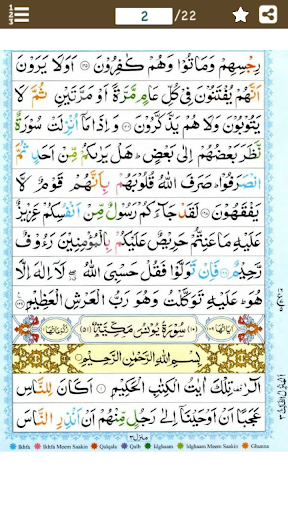 2 /22
رِجْسِهِمْ وَمَاتُوْا وَهُمْ كٰفِرُوْنَ ﴿١٢٥﴾ اَوَلَا يَرَوْنَ
اَنَّهُمْ يُفْتَنُوْنَ فِيْ كُلِّ عَامٍ مَّرَّةً اَوْ مَرَّتَيْنِ ثُمَّ لَا
يَتُوْبُوْنَ وَلَا هُمْ يَذَّكَّرُوْنَ ﴿١٢٦﴾ وَاِذَا مَاۤ اُنْزِلَتْ سُوْرَةٌ
نَّظَرَ بَعْضُهُمْ اِلٰى بَعْضٍ ؕ هَلْ يَرٰىكُمْ مِّنْ اَحَدٍ ثُمَّ
انْصَرَفُوْا ؕ صَرَفَ اللّٰهُ قُلُوْبَهُمْ بِاَنَّهُمْ قَوْمٌ لَّا
يَفْقَهُوْنَ ﴿١٢٧﴾ لَقَدْ جَآءَكُمْ رَسُوْلٌ مِّنْ اَنْفُسِكُمْ عَزِيْزٌ
عَلَيْهِ مَا عَنِتُّمْ حَرِيْصٌ عَلَيْكُمْ بِالْمُؤْمِنِيْنَ رَءُوْفٌ
رَّحِيْمٌ ﴿١٢٨﴾ فَاِنْ تَوَلَّوْا فَقُلْ حَسْبِيَ اللّٰهُ ۖ لَاۤ اِلٰهَ اِلَّا
هُوَ ؕ عَلَيْهِ تَوَكَّلْتُ وَهُوَ رَبُّ الْعَرْشِ الْعَظِيْمِ ﴿١٢٩﴾
اٰيَاتُهَا ١٠٩ (١٠) سُوْرَةُ يُوْنُسَ مَكِّيَّةٌ (٥١) رُكُوْعَاتُهَا ١١
بِسْمِ اللّٰهِ الرَّحْمٰنِ الرَّحِيْمِ
الٓرٰ ۚ تِلْكَ اٰيٰتُ الْكِتٰبِ الْحَكِيْمِ ﴿١﴾ اَكَانَ لِلنَّاسِ
عَجَبًا اَنْ اَوْحَيْنَاۤ اِلٰى رَجُلٍ مِّنْهُمْ اَنْ اَنْذِرِ النَّاسَ
منزل ٣
Ikhfa Ikhfa Meem Saakin Qalqala Qalb Idghaam Idghaam Meem Saakin Ghunna